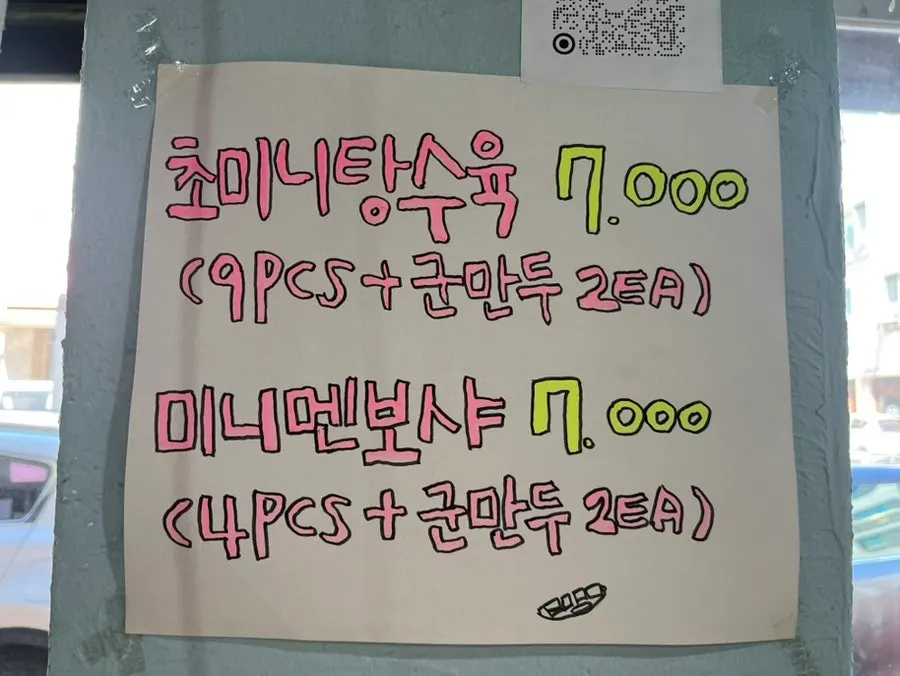 초미니탕수육 7.000
(9PCS + 군만두 2EA)
미니멘보샤 7.000
(4PCS + 군만두 2EA)